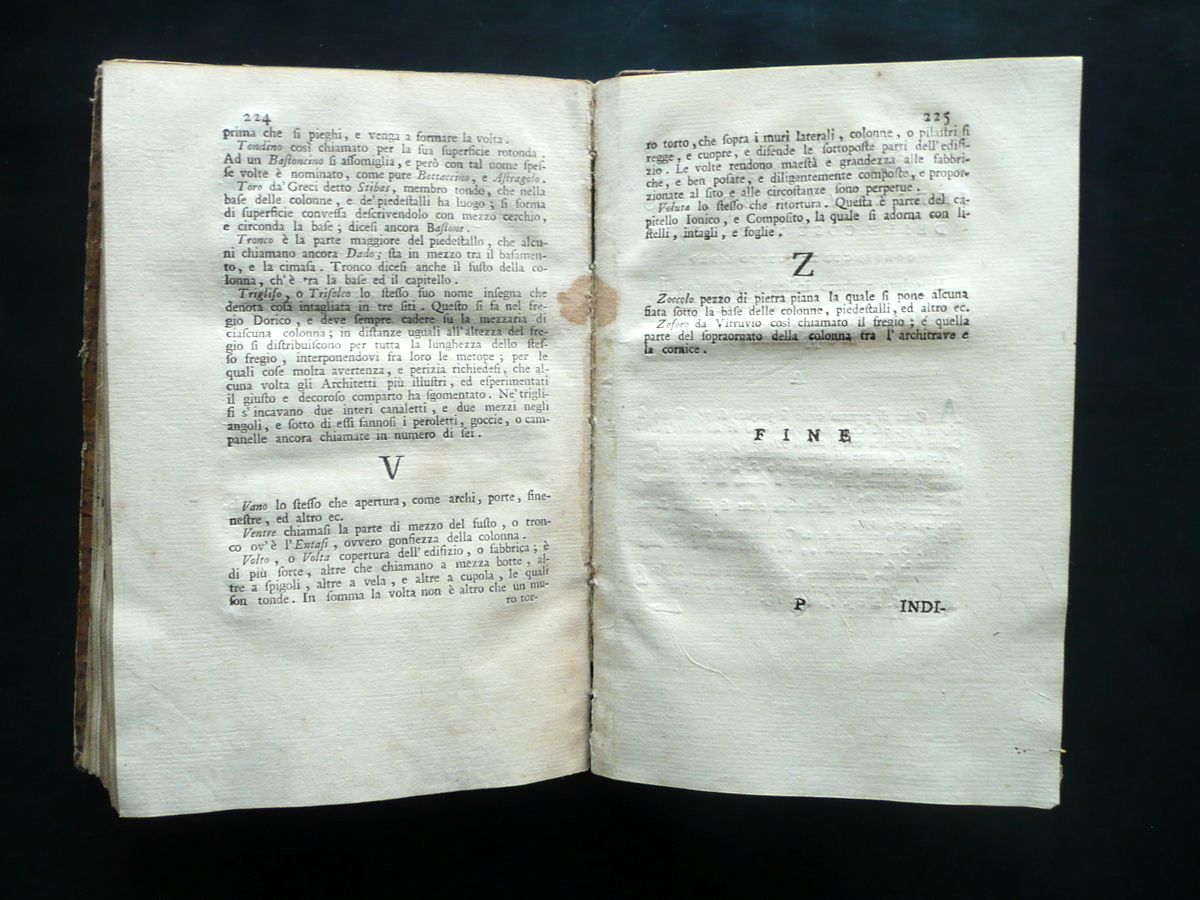 224
prima che ſi pieghi, e venga a formare la volta.
Tondino così chiamato per la ſua ſuperficie rotonda.
Ad un Baſtoncino ſi aſſomiglia, e però con tal nome ſpeſ-
ſe volte è nominato, come pure Bottaccino, e Aſtragolo.
Toro da'Greci detto Stibas, membro tondo, che nella
baſe delle colonne, e de'piedeſtalli ha luogo; ſi forma
di ſuperficie conveſſa deſcrivendolo con mezzo cerchio,
e circonda la baſe; diceſi ancora Baſtone.
Tronco è la parte maggiore del piedeſtallo, che alcu-
ni chiamano ancora Dado; ſta in mezzo tra il baſamen-
to, e la cimaſa. Tronco diceſi anche il fuſto della co-
lonna, ch'è tra la baſe ed il capitello.
Trigliſo, o Triſolco lo ſteſſo ſuo nome inſegna che
denota coſa intagliata in tre ſiti. Queſto ſi fa nel fre-
gio Dorico, e deve ſempre cadere ſu la mezzaria di
ciaſcuna colonna; in diſtanze uguali all'altezza del fre-
gio ſi diſtribuiſcono per tutta la lunghezza dello ſteſ-
ſo fregio, interponendovi fra loro le metope; per le
quali coſe molta avertenza, e perizia richiedeſi, che al-
cuna volta gli Architetti più illuſtri, ed eſperimentati
il giuſto e decoroſo comparto ha ſgomentato. Ne'trigli-
ſi s'incavano due interi canaletti, e due mezzi negli
angoli, e ſotto di eſſi fannoſi i peroletti, goccie, o cam-
panelle ancora chiamate in numero di ſei.
V
Vano lo ſteſſo che apertura, come archi, porte, fine-
neſtre, ed altro ec.
Ventre chiamaſi la parte di mezzo del fuſto, o tron-
co ov'è l'Entaſi, ovvero gonfiezza della colonna.
Volto, o Volta copertura dell'edifizio, o fabbrica; è
di più ſorte, altre che chiamano a mezza botte, al-
tre a ſpigoli, altre a vela, e altre a cupola, le quali
ſon tonde. In ſomma la volta non è altro che un mu-
ro tor-
225
ro torto, che ſopra i muri laterali, colonne, o pilaſtri ſi
regge, e cuopre, e difende le ſottopoſte parti dell'edifi-
zio. Le volte rendono maeſtà e grandezza alle fabbri-
che, e ben poſate, e diligentemente compoſte, e propor-
zionate al ſito e alle circoſtanze ſono perpetue.
Voluta lo ſteſſo che ritortura. Queſta è parte del ca-
pitello Ionico, e Compoſito, la quale ſi adorna con li-
ſtelli, intagli, e foglie.
Z
Zoccolo pezzo di pietra piana la quale ſi pone alcuna
fiata ſotto la baſe delle colonne, piedeſtalli, ed altro ec.
Zoforo da Vitruvio così chiamato il fregio; é quella
parte del ſopraornato della colonna tra l'architrave e
la cornice.
FINE
P INDI-